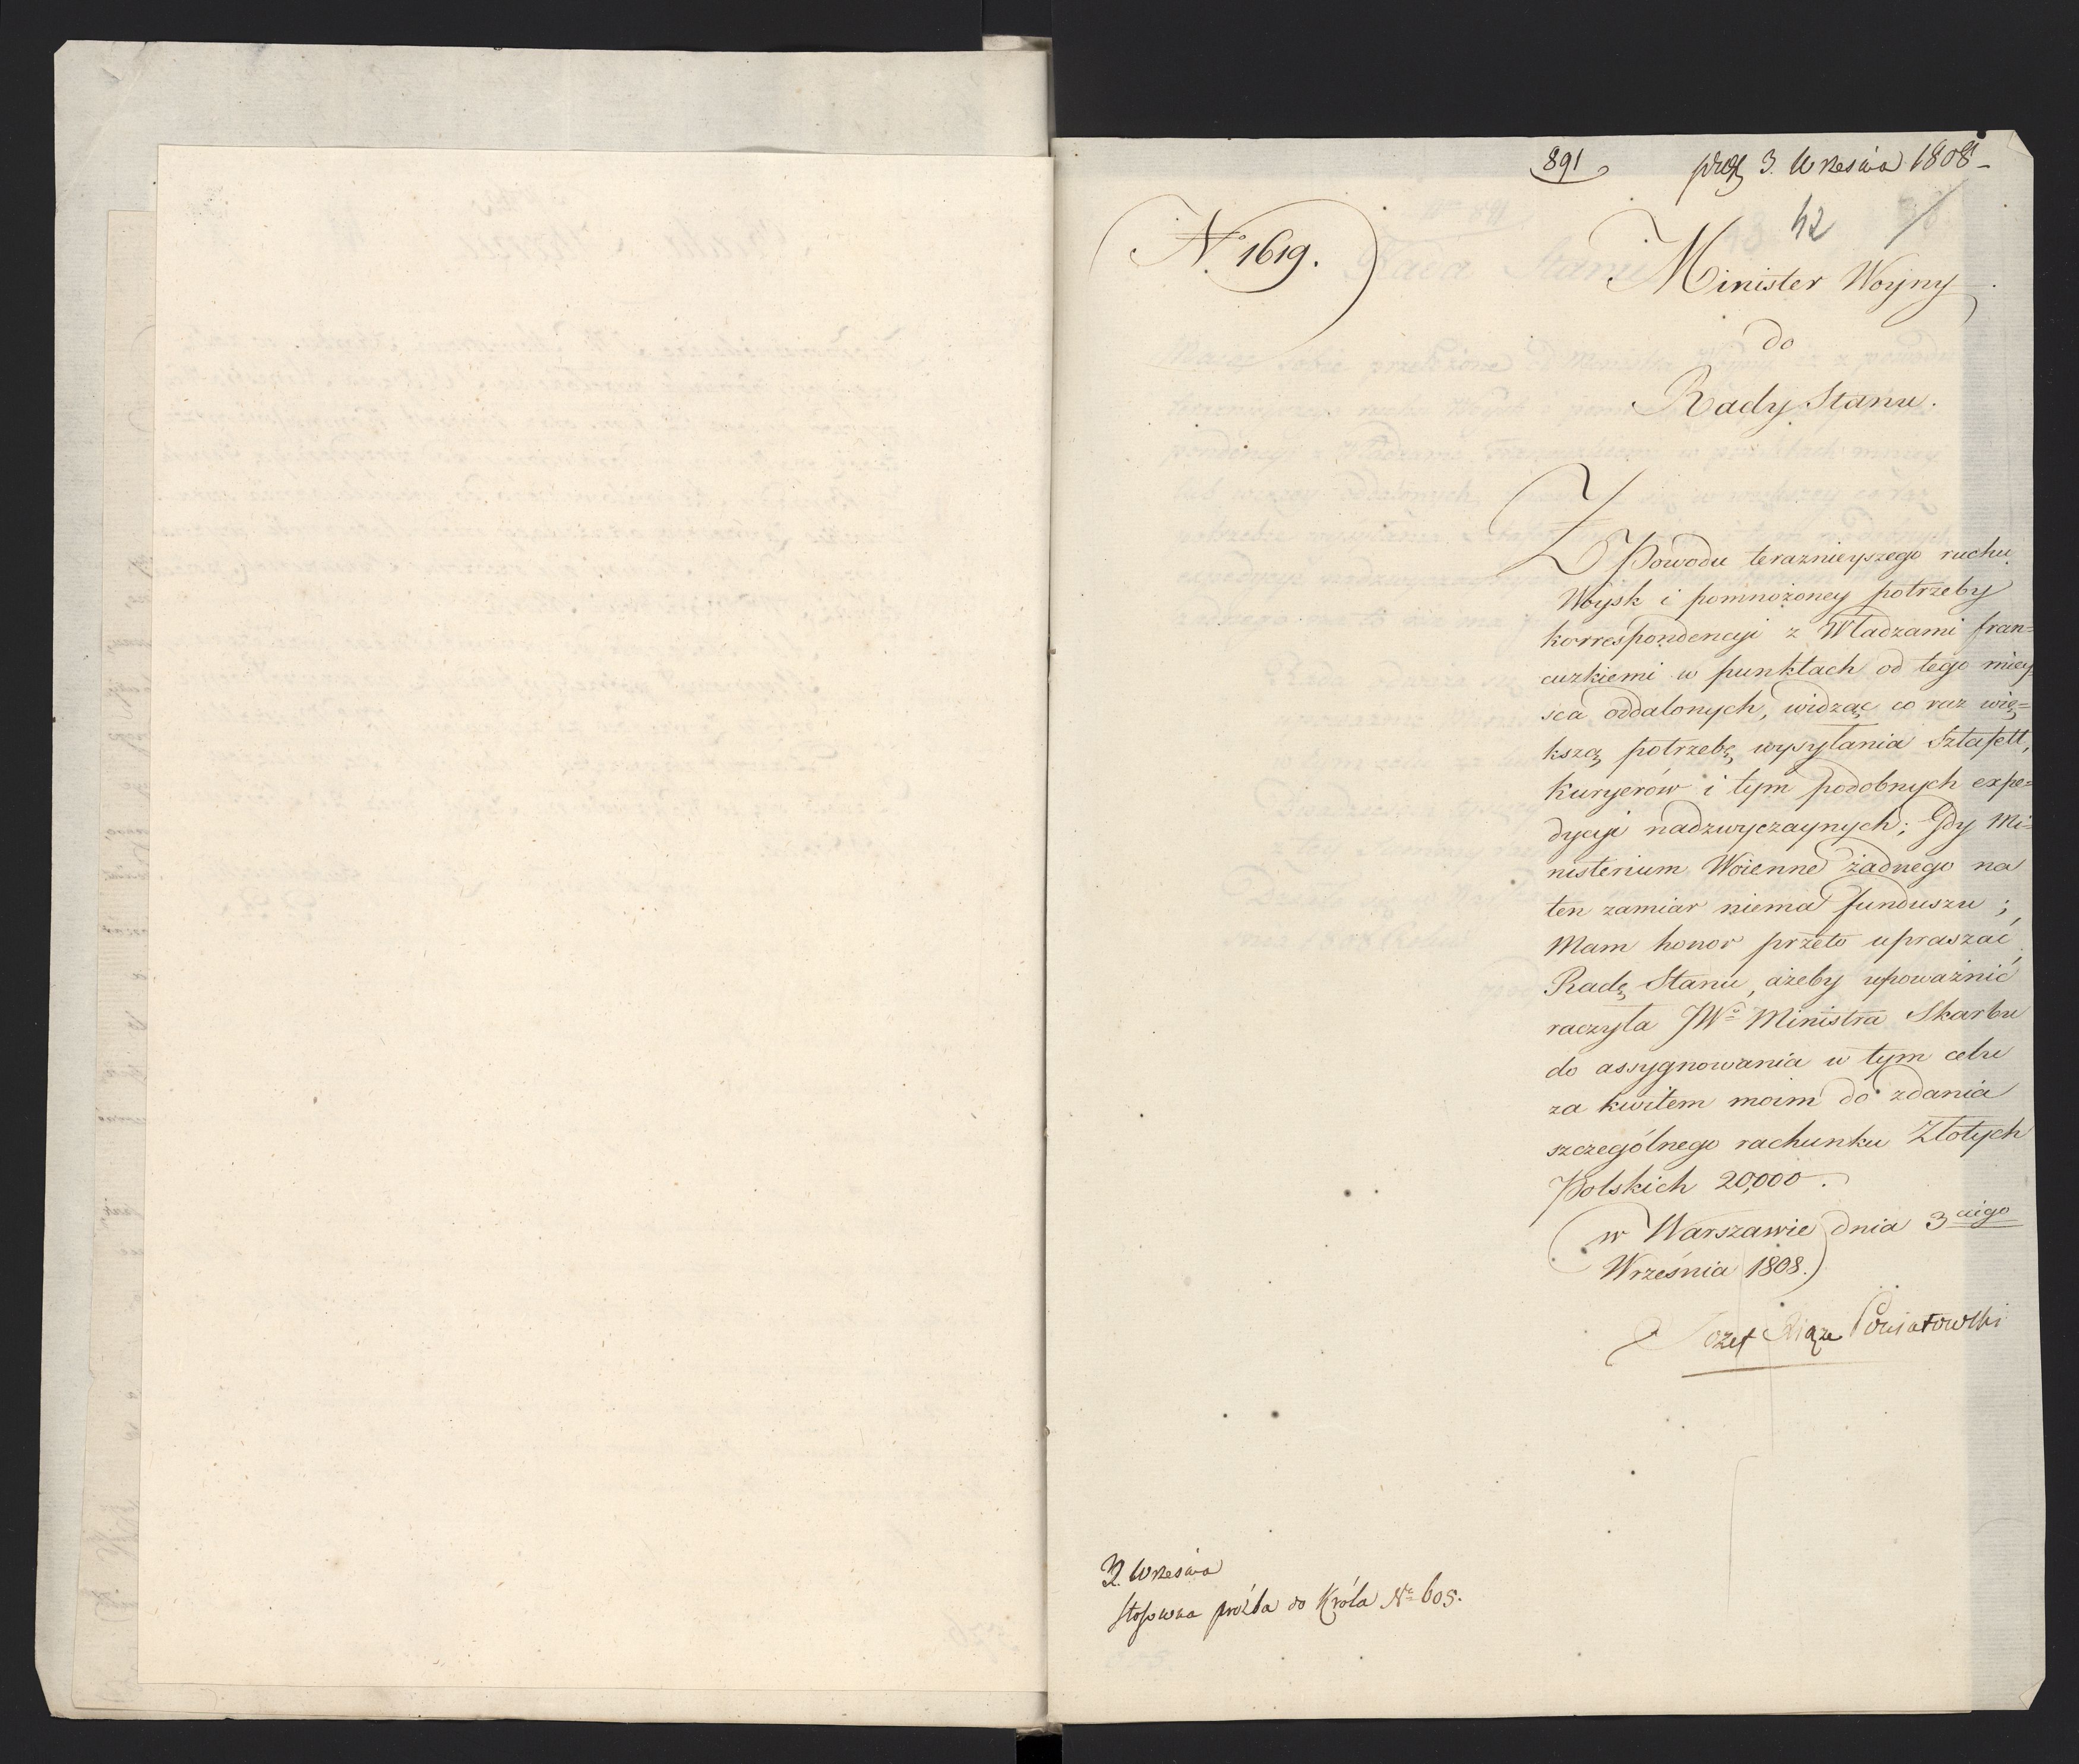 891
prez 3. Września 1808
42
N. 1619.
Minister Woyny
do
Rady Stanu.
Z Powodu teraznieyszego ruchu
Woysk i pomnożoney potrzeby
korrespondencyi z Władzami fran=
cuzkiemi w punktach od tego miey=
sca oddalonych, widząc co raz wię=
kszą potrzebę wysyłania Sztafett,
Kuryerów i tym podobnych expe=
dycyi nadzwyczaynych; Gdy Mi=
nisterium Woienne żadnego na
ten zamiar niema funduszu;
Mam honor przeto upraszać
Radę Stanu, ażeby upoważnić
raczyła JWo Ministra Skarbu
do assygnowania w tym celu
za kwitem moim do zdania
szczególnego rachunku Złotych
Polskich 20,000.
w Warszawie dnia 3ciego
Września 1808.
Jozef Xiąże Poniatowski
Września
Stosowna prózba do Króla No 605.